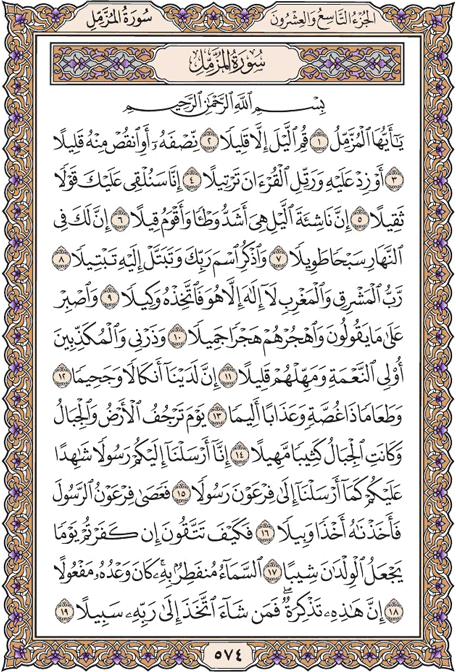 الجزء التاسع والعشرون
سورة المزمل
سورة المزمل
بسم الله الرحمن الرحيم
يَٰٓأَيُّهَا ٱلْمُزَّمِّلُ ١ قُمِ ٱلَّيْلَ إِلَّا قَلِيلًا ٢ نِّصْفَهُۥٓ أَوِ ٱنقُصْ مِنْهُ قَلِيلًا
٣ أَوْ زِدْ عَلَيْهِ وَرَتِّلِ ٱلْقُرْءَانَ تَرْتِيلًا ٤ إِنَّا سَنُلْقِي عَلَيْكَ قَوْلًا
ثَقِيلًا ٥ إِنَّ نَاشِئَةَ ٱلَّيْلِ هِيَ أَشَدُّ وَطْـًٔا وَأَقْوَمُ قِيلًا ٦ إِنَّ لَكَ فِي
ٱلنَّهَارِ سَبْحًا طَوِيلًا ٧ وَٱذْكُرِ ٱسْمَ رَبِّكَ وَتَبَتَّلْ إِلَيْهِ تَبْتِيلًا ٨
رَّبُّ ٱلْمَشْرِقِ وَٱلْمَغْرِبِ لَآ إِلَٰهَ إِلَّا هُوَ فَٱتَّخِذْهُ وَكِيلًا ٩ وَٱصْبِرْ
عَلَىٰ مَا يَقُولُونَ وَٱهْجُرْهُمْ هَجْرًا جَمِيلًا ١٠ وَذَرْنِي وَٱلْمُكَذِّبِينَ
أُو۟لِي ٱلنَّعْمَةِ وَمَهِّلْهُمْ قَلِيلًا ١١ إِنَّ لَدَيْنَآ أَنكَالًا وَجَحِيمًا ١٢
وَطَعَامًا ذَا غُصَّةٍ وَعَذَابًا أَلِيمًا ١٣ يَوْمَ تَرْجُفُ ٱلْأَرْضُ وَٱلْجِبَالُ
وَكَانَتِ ٱلْجِبَالُ كَثِيبًا مَّهِيلًا ١٤ إِنَّآ أَرْسَلْنَآ إِلَيْكُمْ رَسُولًا شَٰهِدًا
عَلَيْكُمْ كَمَآ أَرْسَلْنَآ إِلَىٰ فِرْعَوْنَ رَسُولًا ١٥ فَعَصَىٰ فِرْعَوْنُ ٱلرَّسُولَ
فَأَخَذْنَٰهُ أَخْذًا وَبِيلًا ١٦ فَكَيْفَ تَتَّقُونَ إِن كَفَرْتُمْ يَوْمًا
يَجْعَلُ ٱلْوِلْدَٰنَ شِيبًا ١٧ ٱلسَّمَآءُ مُنفَطِرٌۢ بِهِۦ كَانَ وَعْدُهُۥ مَفْعُولًا
١٨ إِنَّ هَٰذِهِۦ تَذْكِرَةٌ ۖ فَمَن شَآءَ ٱتَّخَذَ إِلَىٰ رَبِّهِۦ سَبِيلًا ١٩
٥٧٤